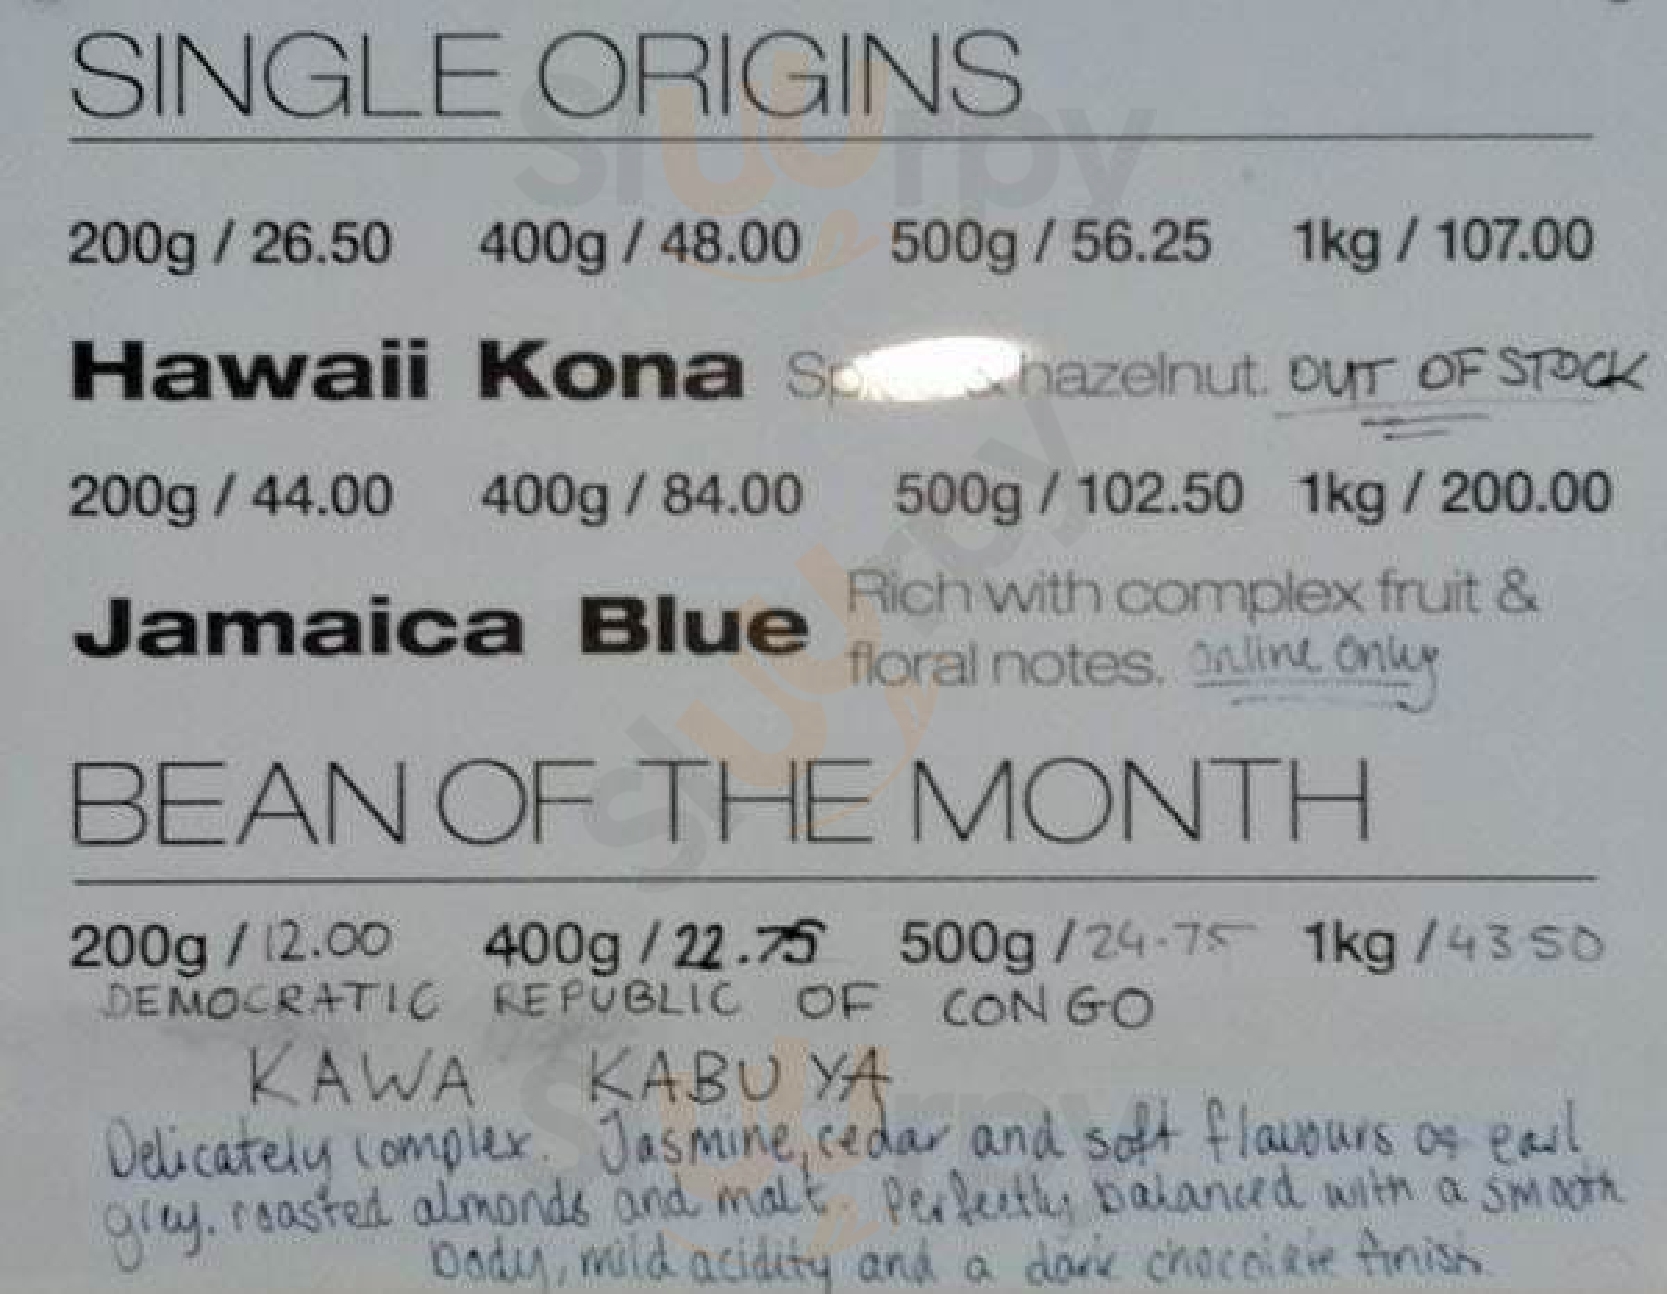 SINGLE ORIGINS
200g / 26.50 400g / 48.00 500g / 56.25 1kg / 107.00
Hawaii Kona hazelnut. OUT OF STOCK
200g / 44.00 400g / 84.00 500g / 102.50 1kg / 200.00
Jamaica Blue Rich with complex fruit &
floral notes. online only
BEAN OF THE MONTH
200g / 12.00 400g / 22.75 500g / 24.75 1kg / 43.50
DEMOCRATIC REPUBLIC OF CONGO
KAWA KABUYA
Delicately complex. Jasmine, cedar and soft flavours of earl
grey, roasted almonds and malt. Perfectly balanced with a smooth
body, mild acidity and a dark chocolate finish.
Slurpy
Slurpy
Slurpy